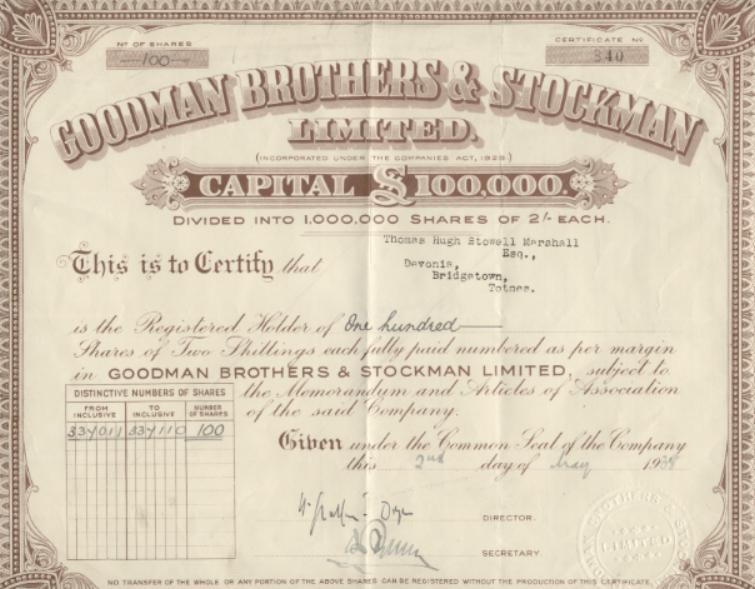 Nº OF SHARES
100
CERTIFICATE Nº
340
GOODMAN BROTHERS & STOCKMAN
LIMITED.
(INCORPORATED UNDER THE COMPANIES ACT, 1929.)
CAPITAL £100,000.
DIVIDED INTO 1,000,000 SHARES OF 2/- EACH.
Thomas Hugh Stowell Marshall
Esq.,
This is to Certify that
Devonia,
Bridgetown,
Totnes.
is the Registered Holder of One hundred
Shares of Two Shillings each fully paid numbered as per margin
in GOODMAN BROTHERS & STOCKMAN LIMITED, subject to
the Memorandum and Articles of Association
of the said Company.
DISTINCTIVE NUMBERS OF SHARES
FROM INCLUSIVE TO INCLUSIVE NUMBER OF SHARES
337011 337110 100
Given under the Common Seal of the Company
this 2nd day of May 19
DIRECTOR.
SECRETARY.
LIMITED
NO TRANSFER OF THE WHOLE OR ANY PORTION OF THE ABOVE SHARES CAN BE REGISTERED WITHOUT THE PRODUCTION OF THIS CERTIFICATE.